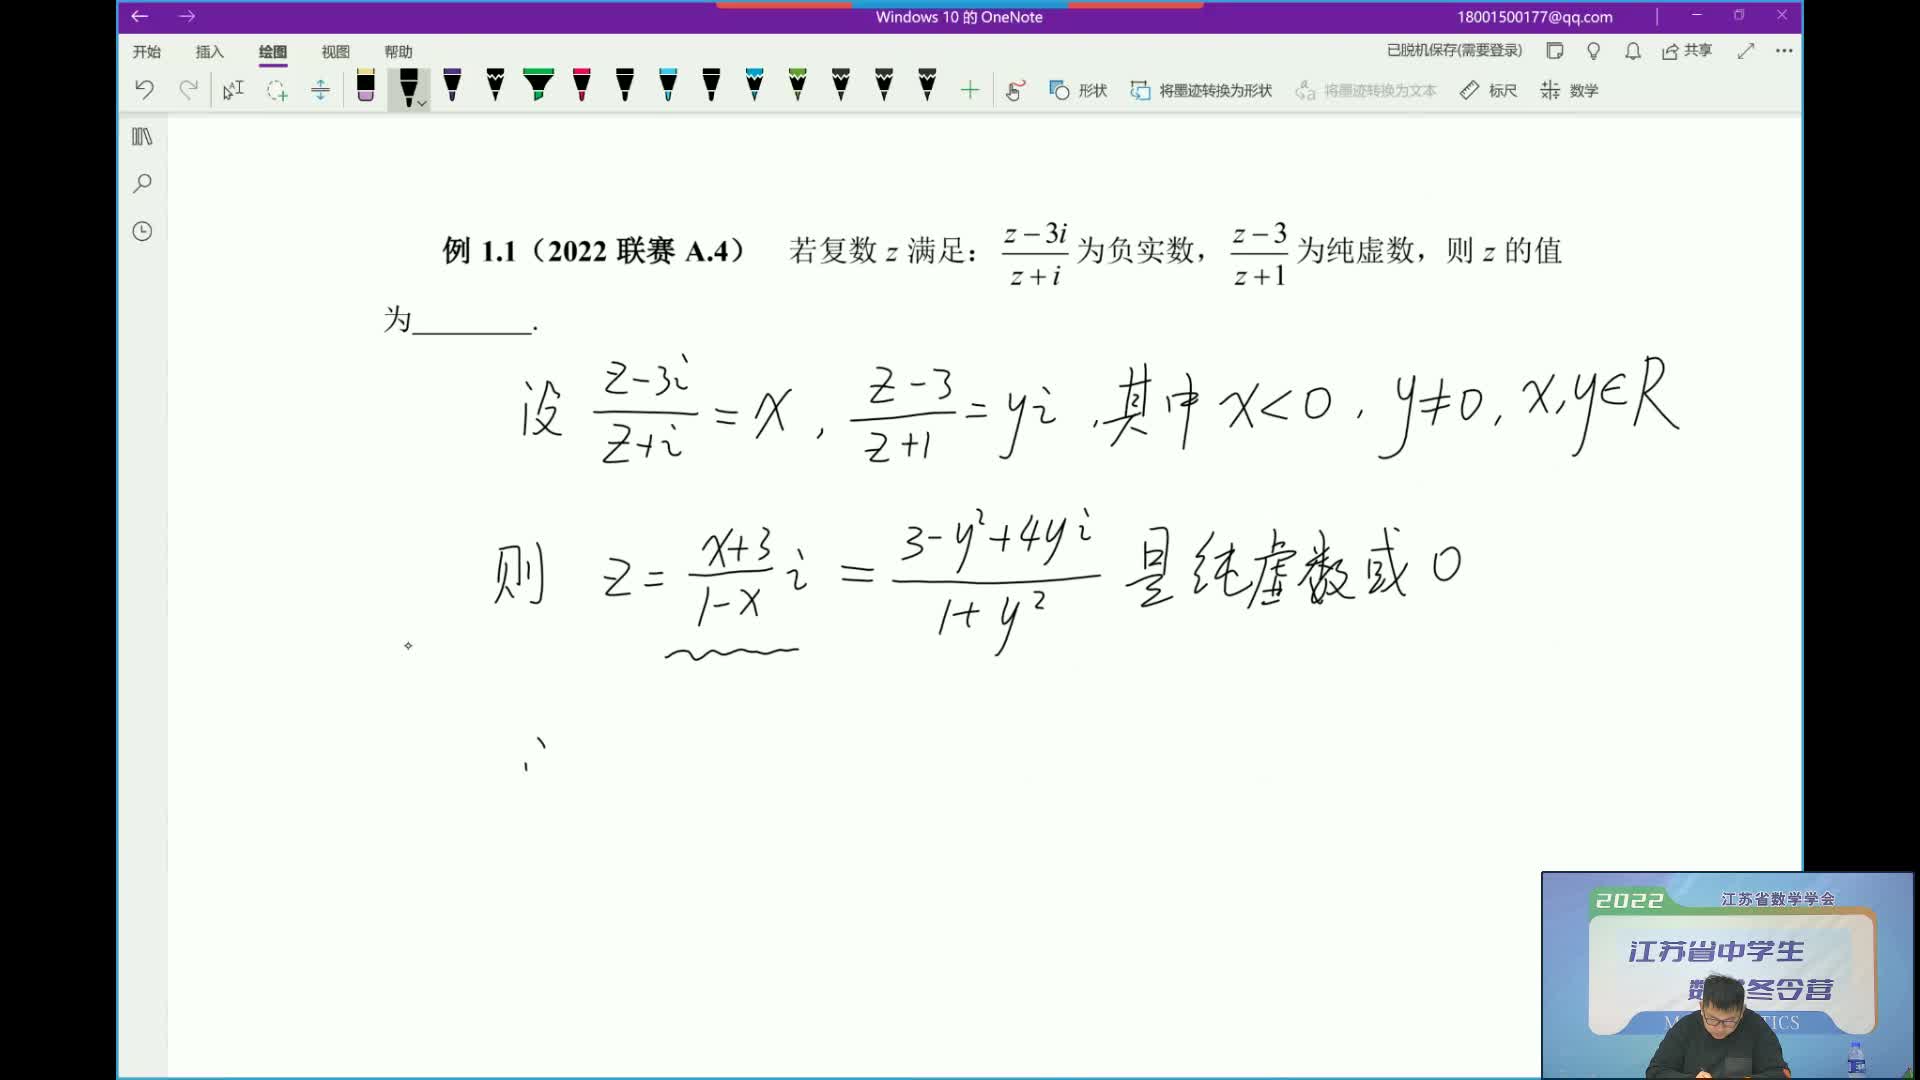 Windows 10 的 OneNote
18001500177@qq.com
开始 插入 绘图 视图 帮助
已脱机保存(需要登录) 共享
形状 将墨迹转换为形状 将墨迹转换为文本 标尺 数学
例 1.1（2022 联赛 A.4） 若复数 z 满足：(z-3i)/(z+i) 为负实数，(z-3)/(z+1) 为纯虚数，则 z 的值
为________.
设 (z-3i)/(z+i) = x , (z-3)/(z+1) = yi , 其中 x<0 , y≠0, x,y∈R
则 z = (x+3)/(1-x) i = (3-y²+4yi)/(1+y²) 是纯虚数或 0
2022 江苏省数学学会
江苏省中学生
冬令营